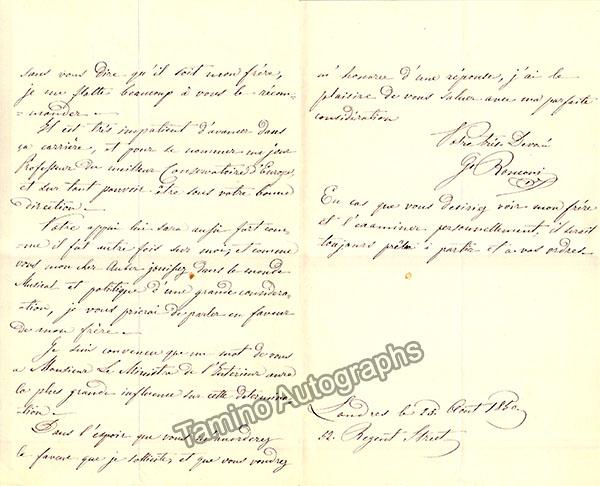 sans vous dire qu'il soit mon frère,
je me flatte beaucoup à vous le récom-
=mander.—
Il est très impatient d'avancer dans
sa carrière, et pour se nommer un jour
Professeur du meilleur Conservatoire d'Europe,
et sur tout pouvoir être sous votre bonne
direction.—
Votre appui lui sera aussi fort com-
=me il fut autre fois sur moi; et comme
vous mon cher Auber jouissez dans le monde
Musical et politique d'une grande considera-
=tion, je vous prierai de parler en faveur
de mon frère.—
Je suis convencu que un mot de vous
a Monsieur Le Ministre de l'Interieur aura
la plus grande influence sur cette determina-
=tion.—
Dans l'espoir que vous m'accorderez
la faveur que je sollicite, et que vous voudrez
m'honorer d'une réponse, j'ai le
plaisir de vous saluer avec ma parfaite
consideration
Votre très Devoué
Ronconi
En cas que vous desiriez voir mon frère
et l'examiner personnellement, il serait
toujours prêt à partir et a vos ordres.
Londres le Aout
Regent Street
Tamino Autographs